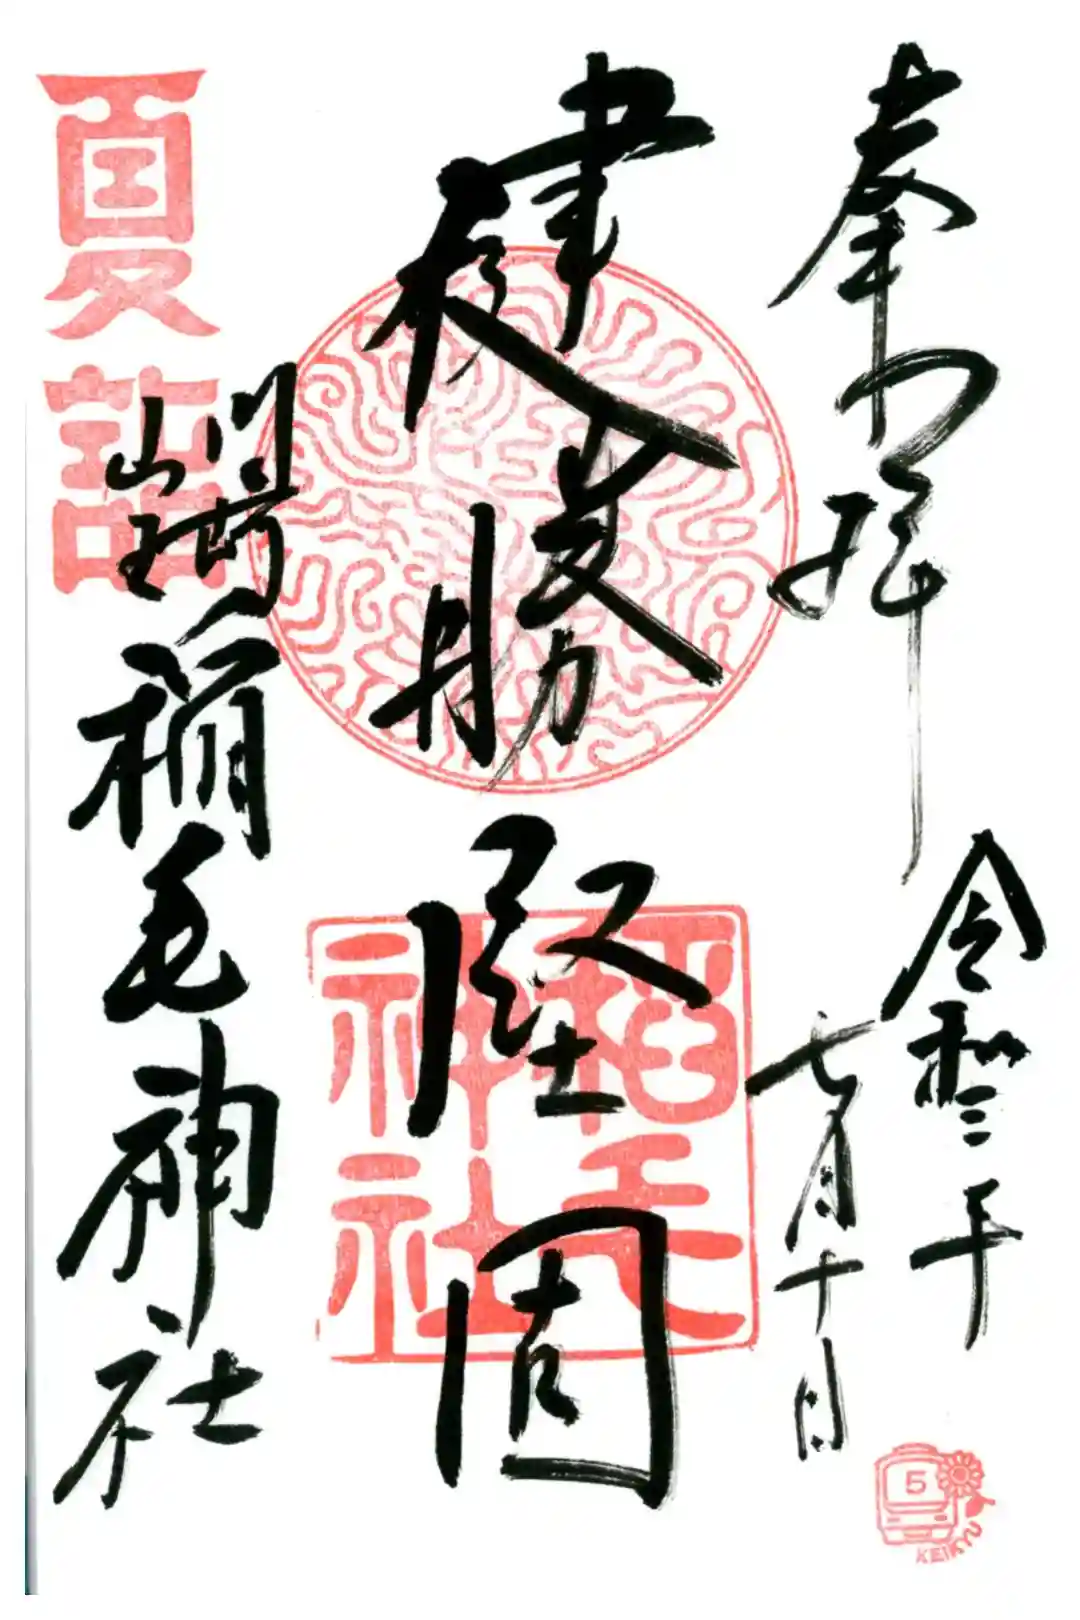 奉拝
令和三年
七月十日
健勝堅固
川崎
山王
稲毛神社
夏詣
稲毛
神社
5